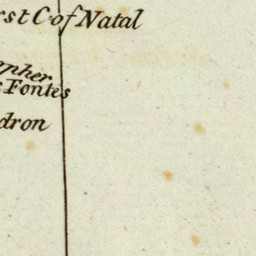 rst C. of Natal
apher
s Fontes
dron